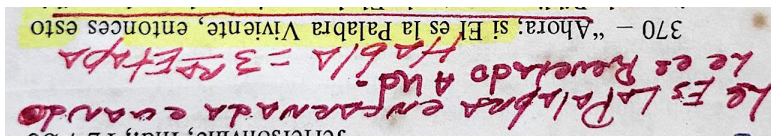 Le Es La Palabra encarnada cuando
Le es Revelado A Ud.
Habla = 3RA Etapa
370 – “Ahora; si El es la Palabra Viviente, entonces esto